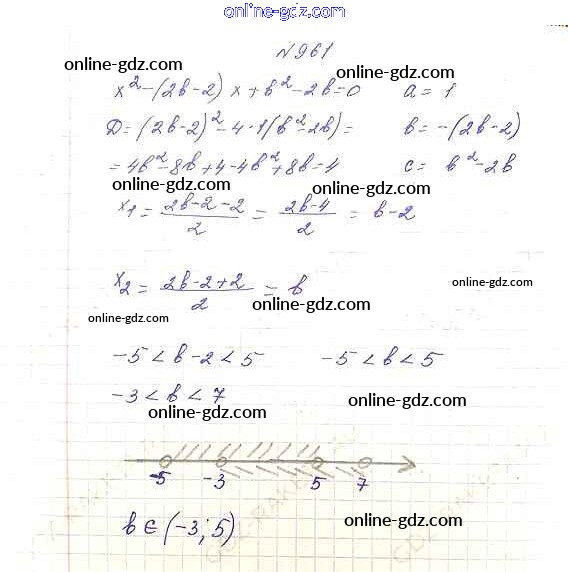 online-gdz.com
№961
online-gdz.com online-gdz.com
x² - (2b-2) x + b² - 2b = 0 a = 1
D = (2b-2)² - 4·1(b²-2b) = b = -(2b-2)
= 4b² - 8b + 4 - 4b² + 8b = 4 c = b² - 2b
online-gdz.com online-gdz.com
x₁ = (2b-2-2)/2 = (2b-4)/2 = b-2
online-gdz.com
x₂ = (2b-2+2)/2 = b
online-gdz.com
online-gdz.com
online-gdz.com online-gdz.com
-5 < b-2 < 5 -5 < b < 5
-3 < b < 7
online-gdz.com online-gdz.com
-5 -3 5 7
b ∈ (-3; 5)
online-gdz.com